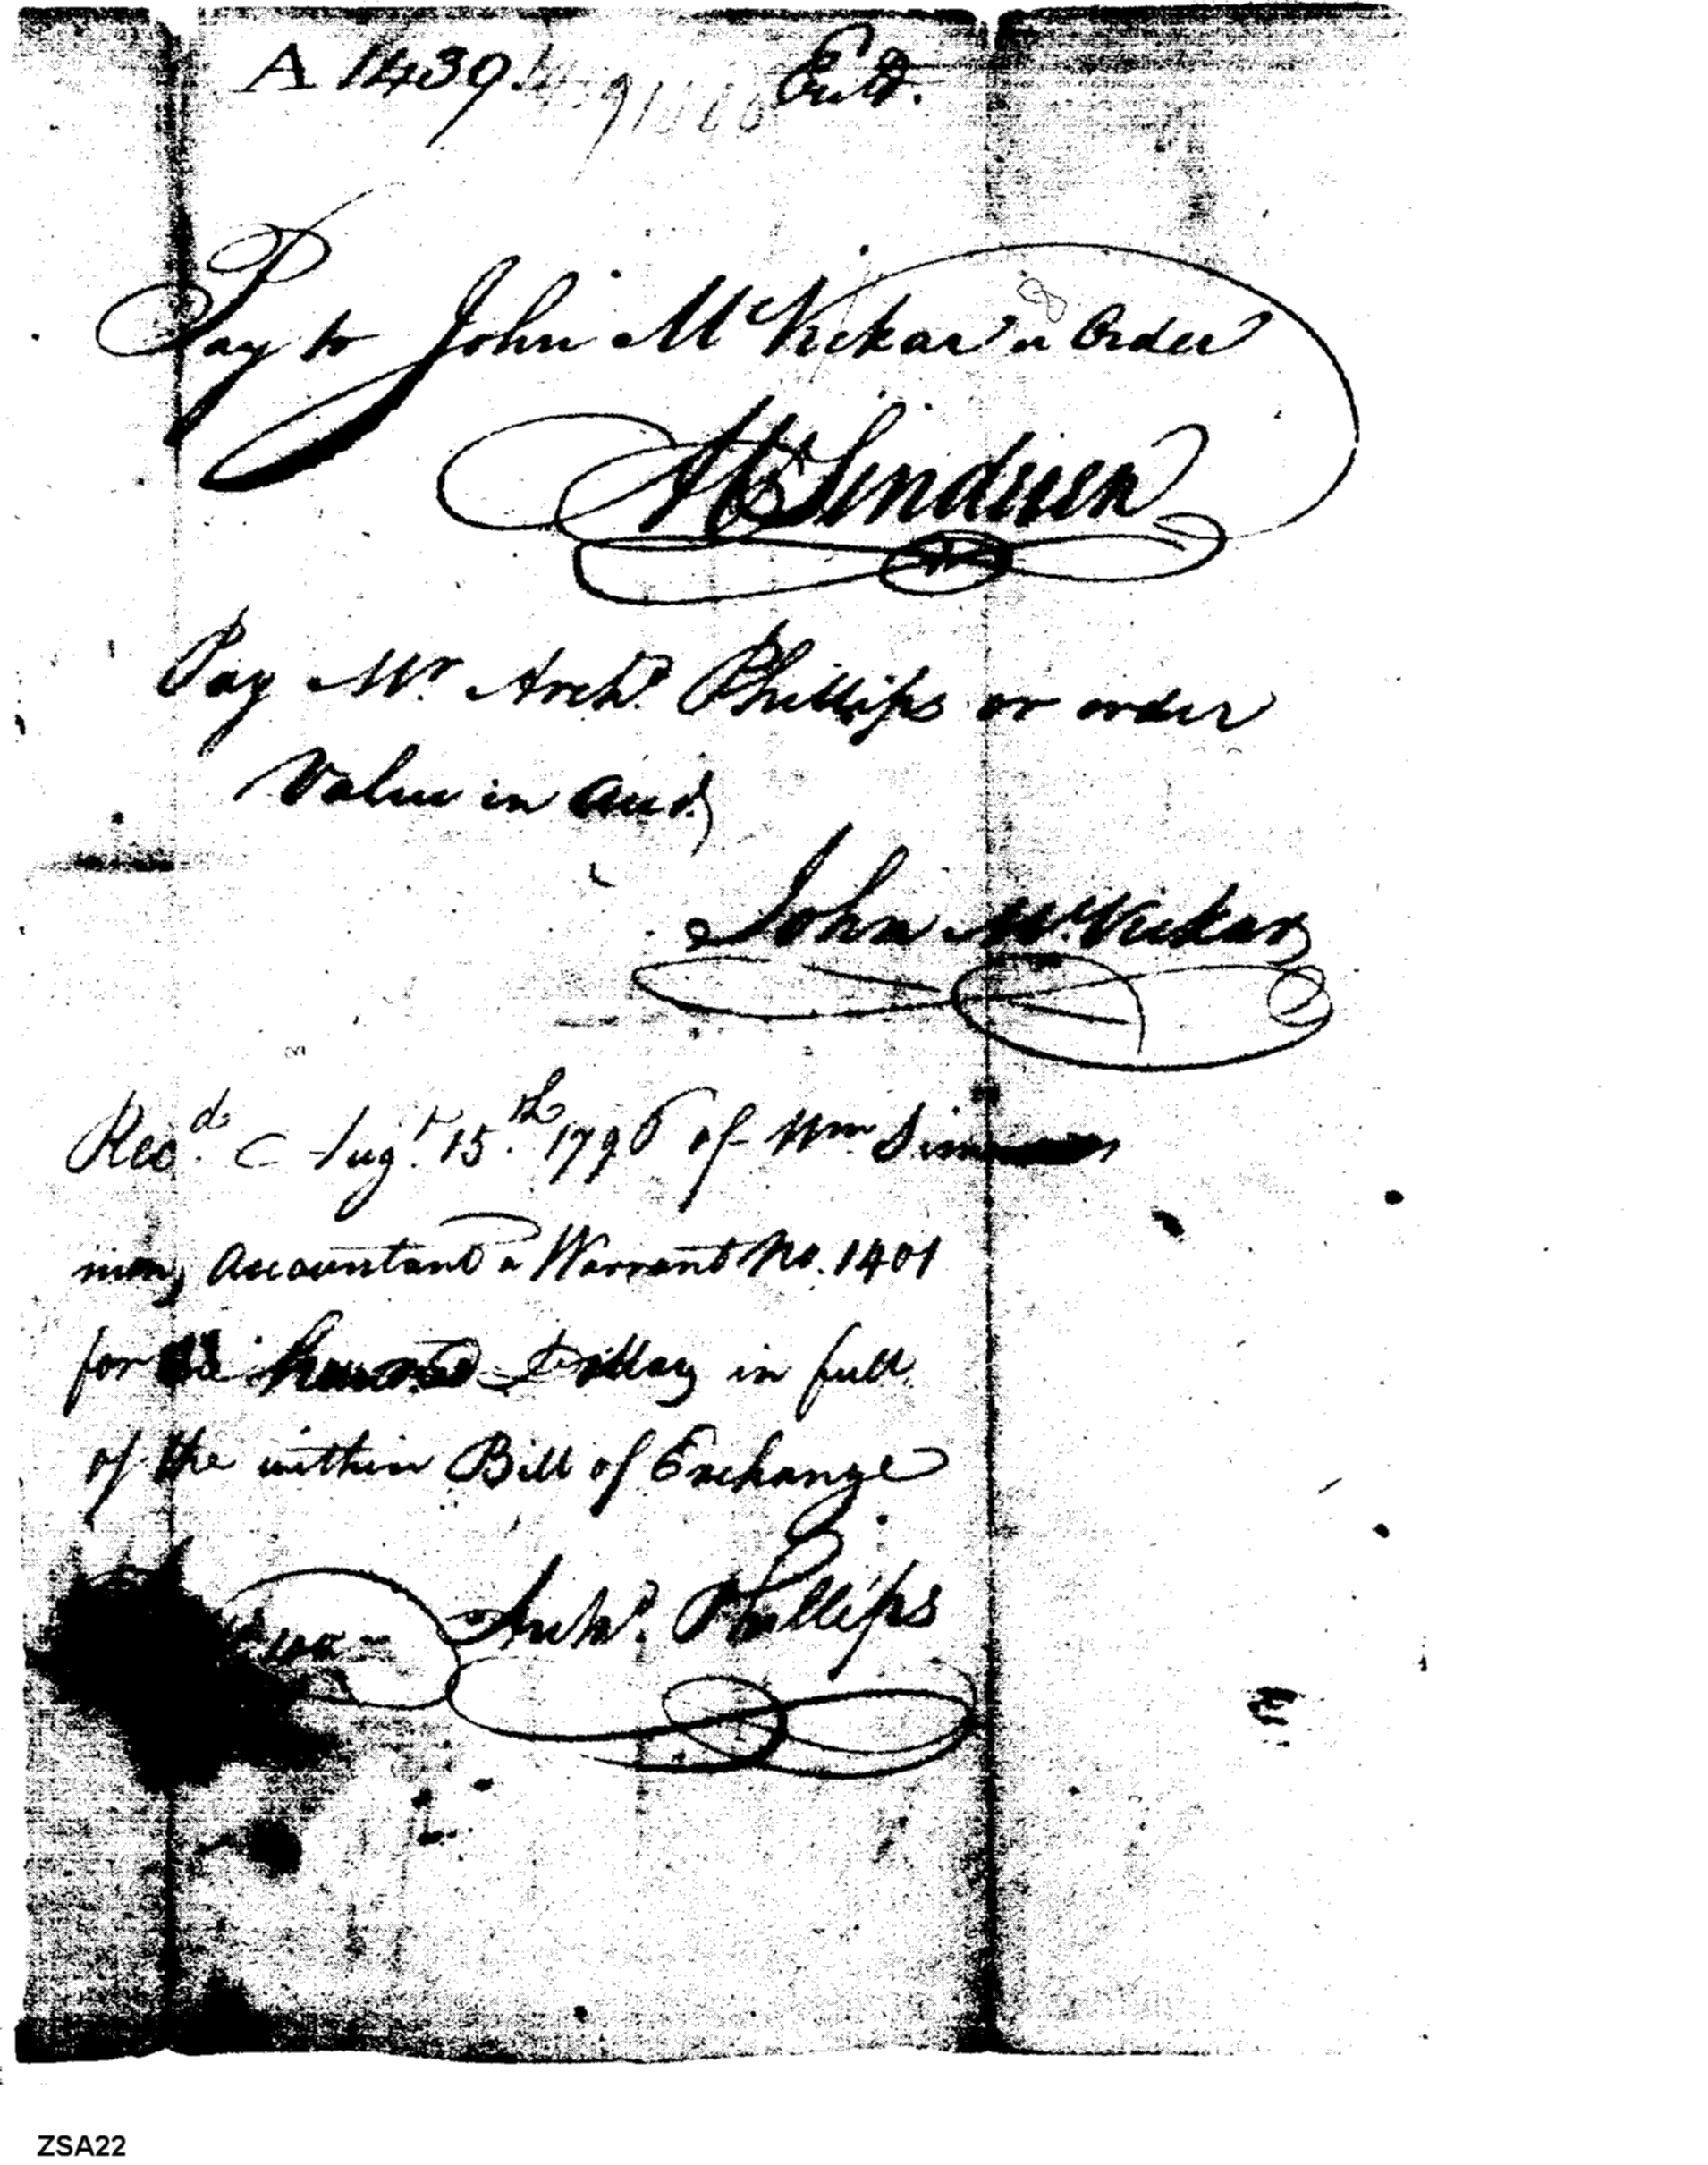 A 1439.
Pay to John McVickar or Order
Pay Mr. Archd. Phillips or order
Value in Acct.
John McVickar
Recd. Augt. 15th 1796 of Wm Simmons
mons, Accountant a Warrant No. 1401
for hundred Dollars in full
of the within Bill of Exchange
Archd. Phillips
ZSA22